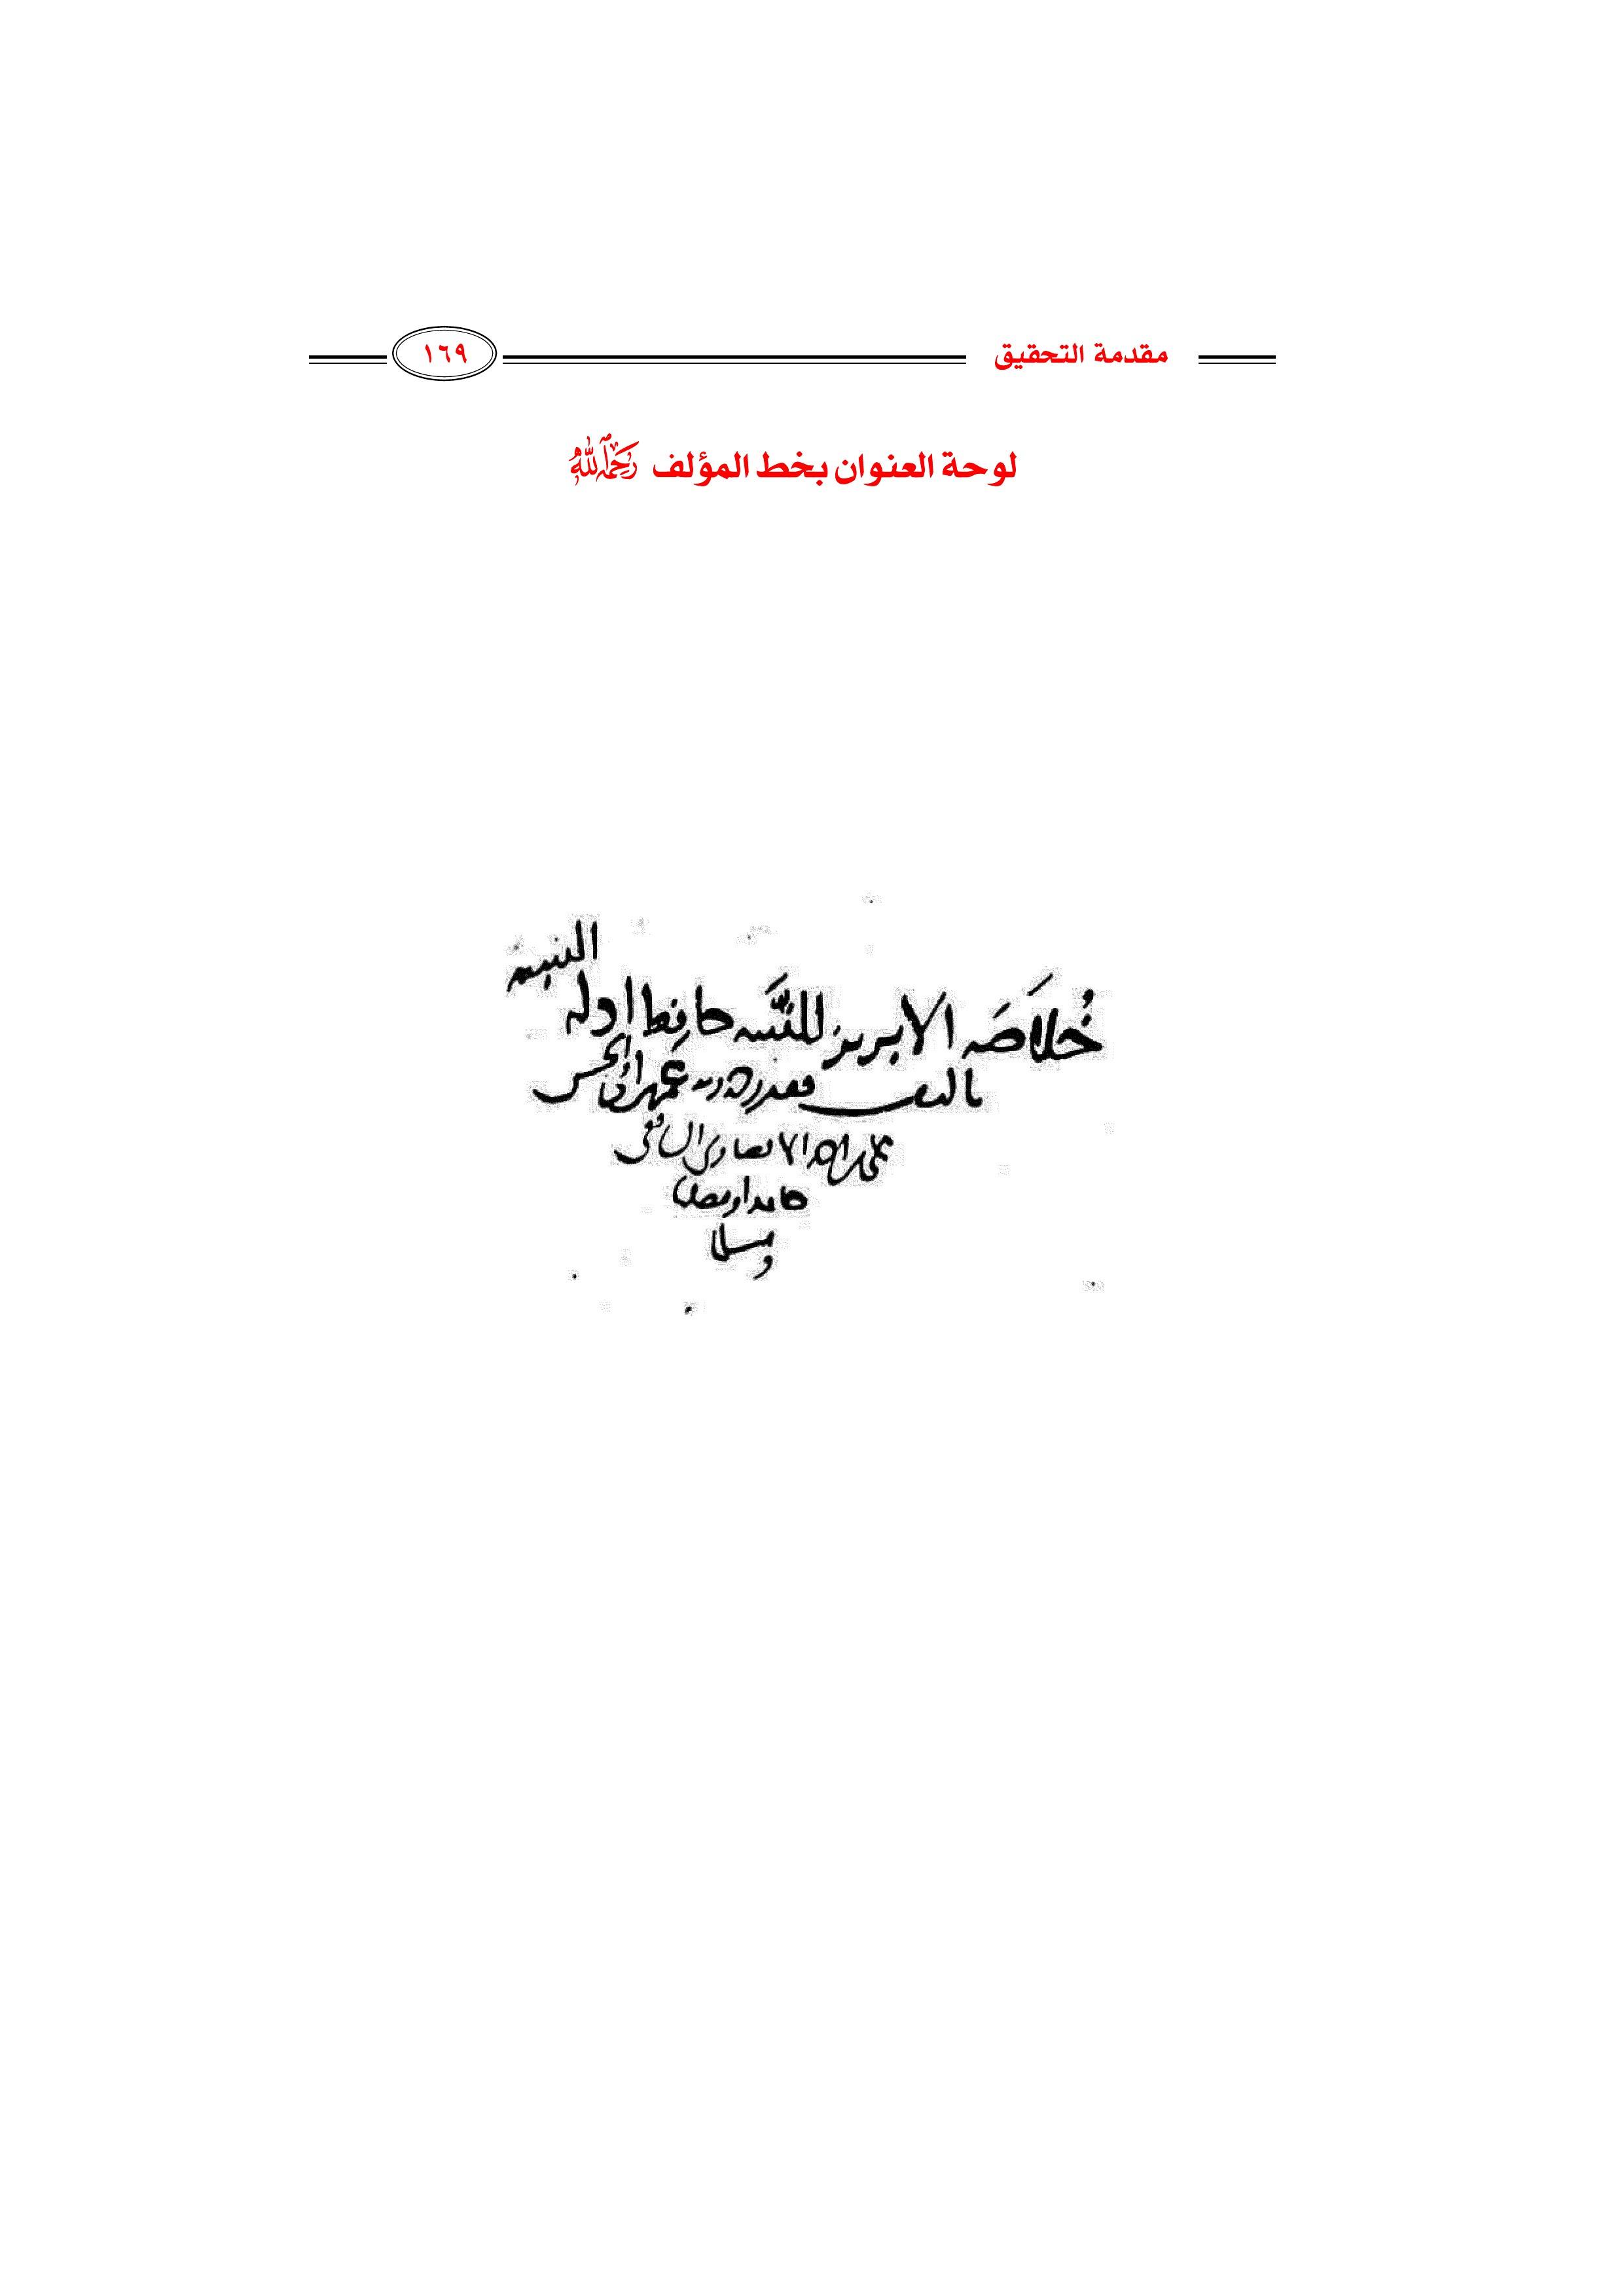 مقدمة التحقيق ١٦٩
لوحة العنوان بخط المؤلف رحمه الله
خُلاَصَه الابريز للنَّبيه حافظ ادله التنبيه
تاليف فقير رحمة ربه عمر بن ابى الحسن
على بن احمد الانصارى الشافعى
حامدا ومصليا
ومسلما